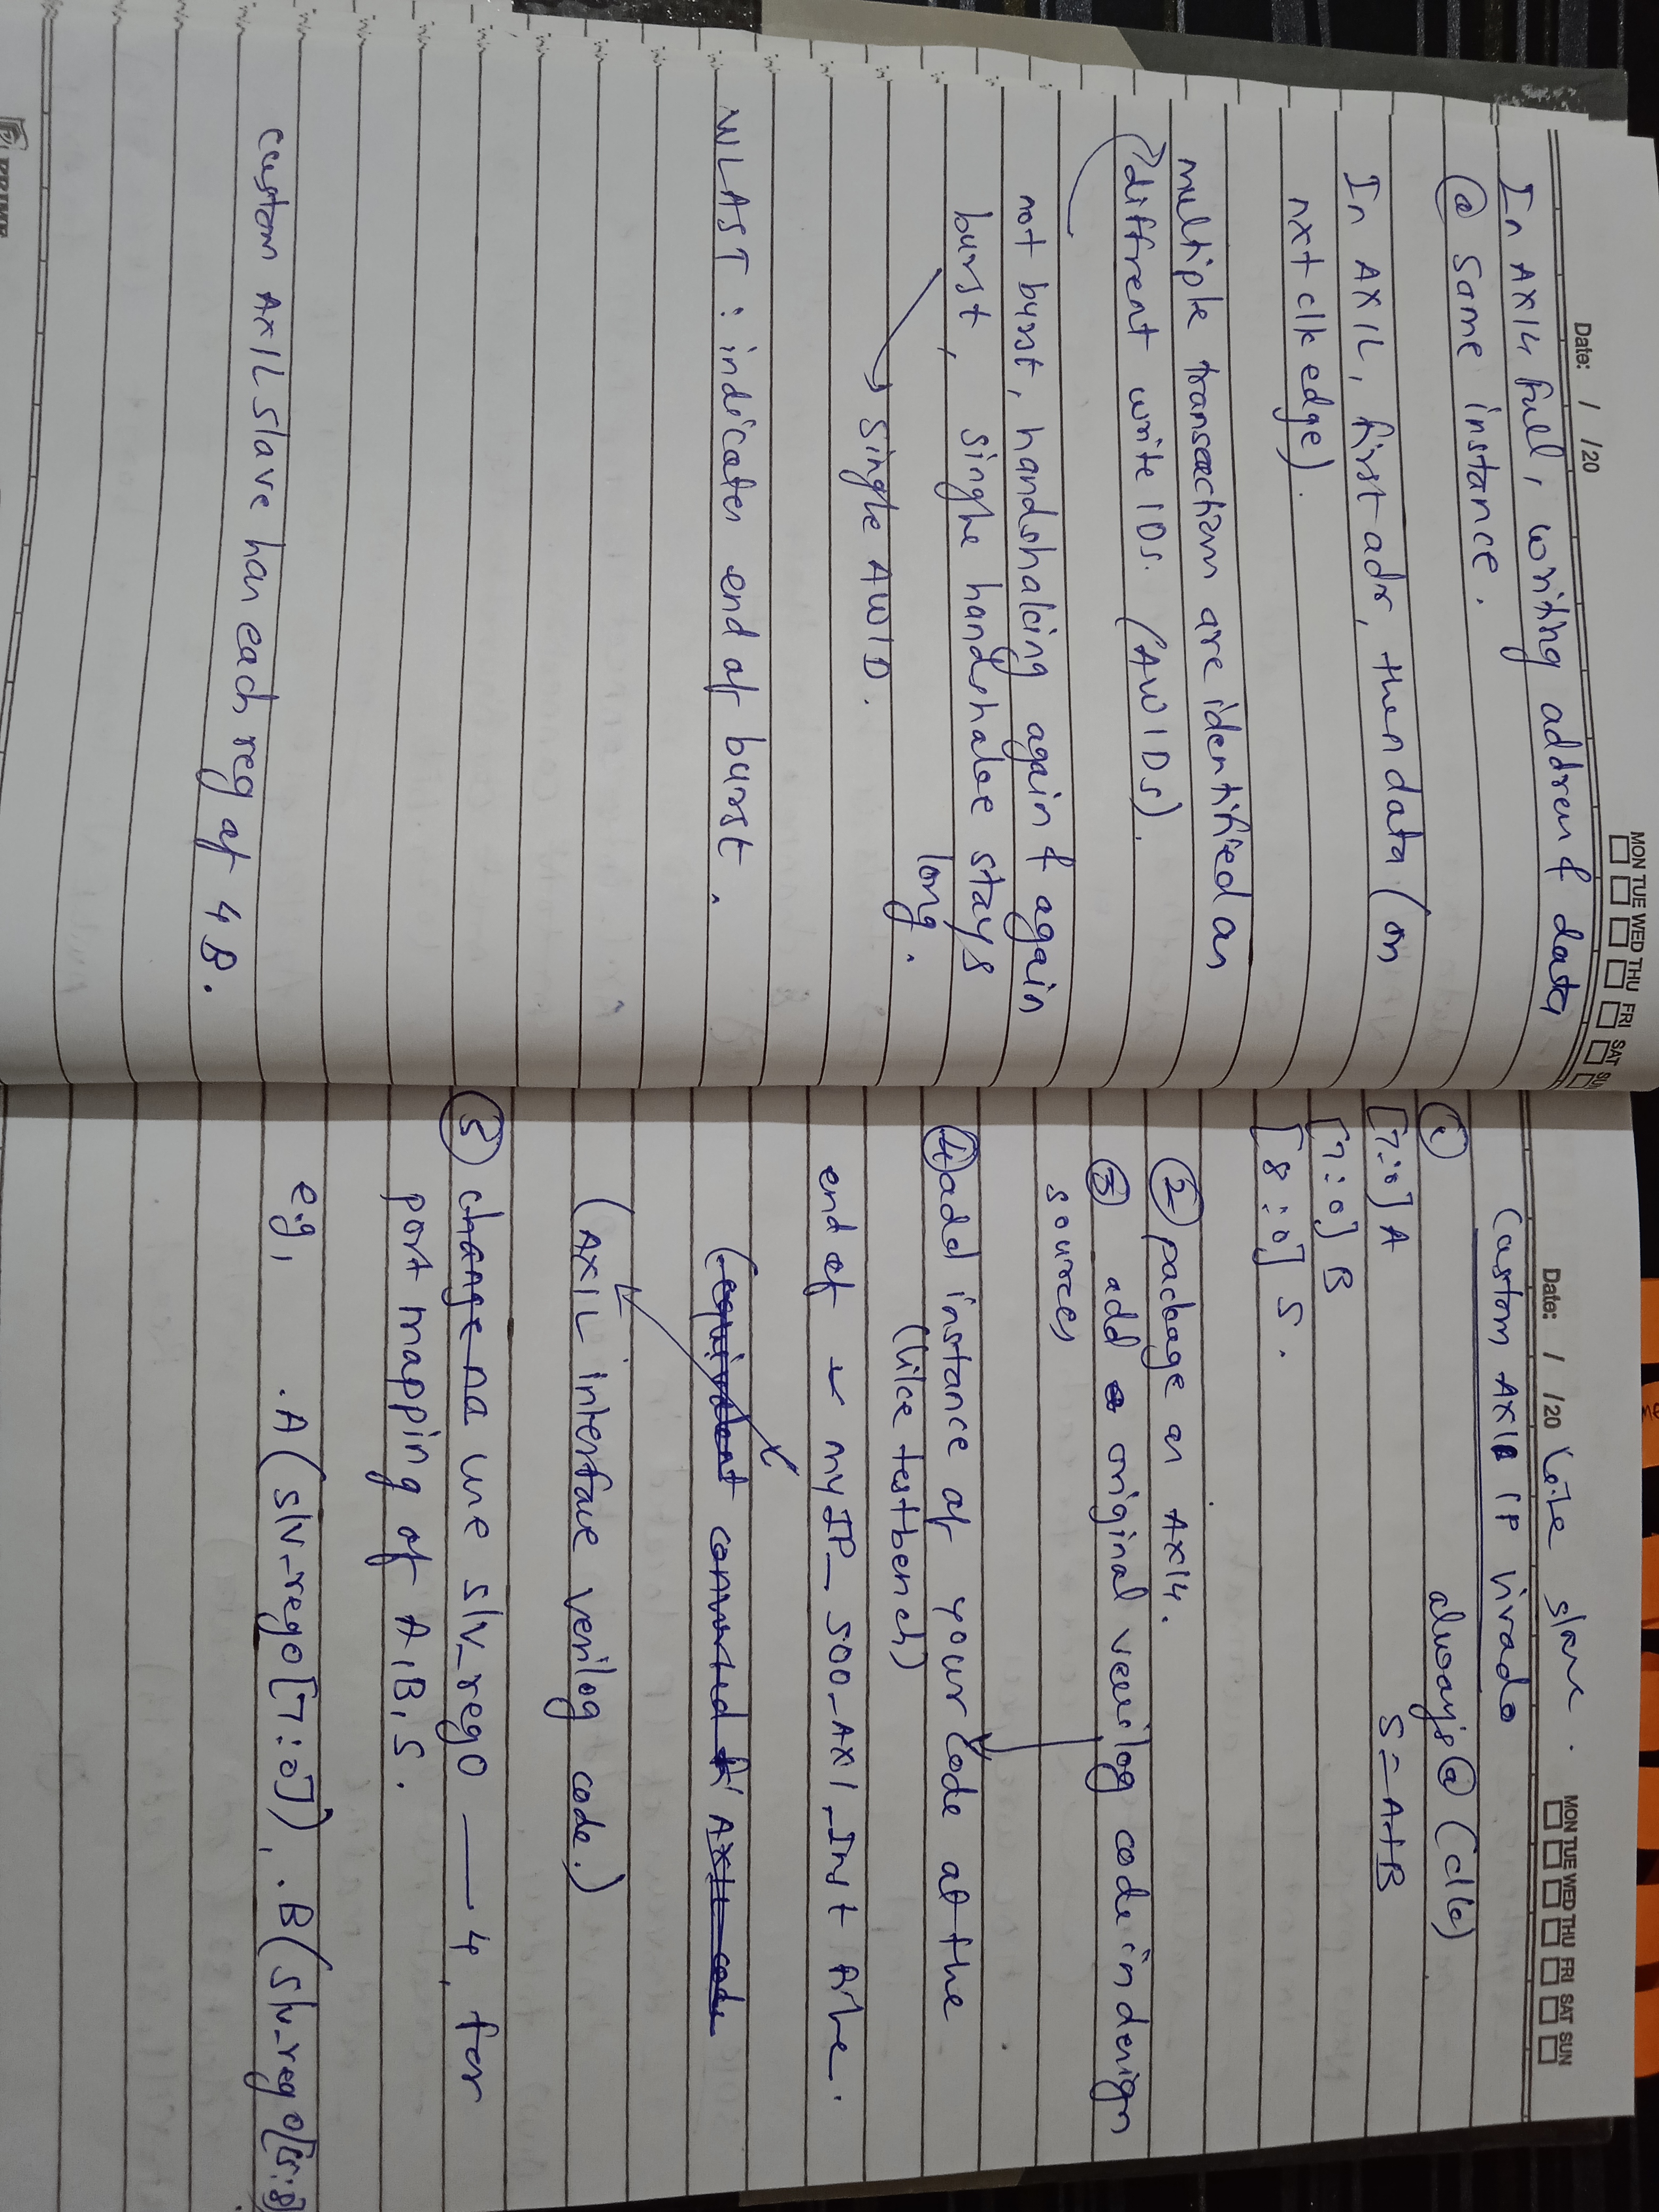 Date: / /20
MON TUE WED THU FRI SAT SUN
In AXI4 full, writing address & data
@ same instance.
In AXIL, first adr, then data (on
nxt clk edge).
multiple transaction are identified as
diffrent write IDs. (AWIDs).
not burst, handshaking again & again
burst, single handshake stays
long.
single AWID.
WLAST : indicates end of burst.
custom AXIL slave has each reg of 4B.
PRIME
Date: / /20
MON TUE WED THU FRI SAT SUN
Lite slave.
Custom AXI IP Vivado
① always @ (clk)
[7:0] A S = A+B
[7:0] B
[8:0] S.
② package as AXI4.
③ add original verilog code in design
sources
④ add instance of your code at the
(like testbench)
end of myIP_S00_AXI_Inst file.
(equivalent converted AXIL code
(AXIL interface verilog code.)
⑤ change na use slv_reg0 — 4, for
port mapping of A, B, S.
eg, .A(slv_reg0[7:0]), .B(slv_reg0[15:8]